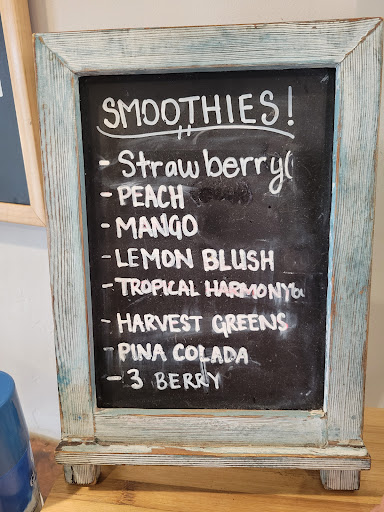 SMOOTHIES!
- Strawberry(
- PEACH
- MANGO
- LEMON BLUSH
- TROPICAL HARMONY
- HARVEST GREENS
- PINA COLADA
- 3 BERRY